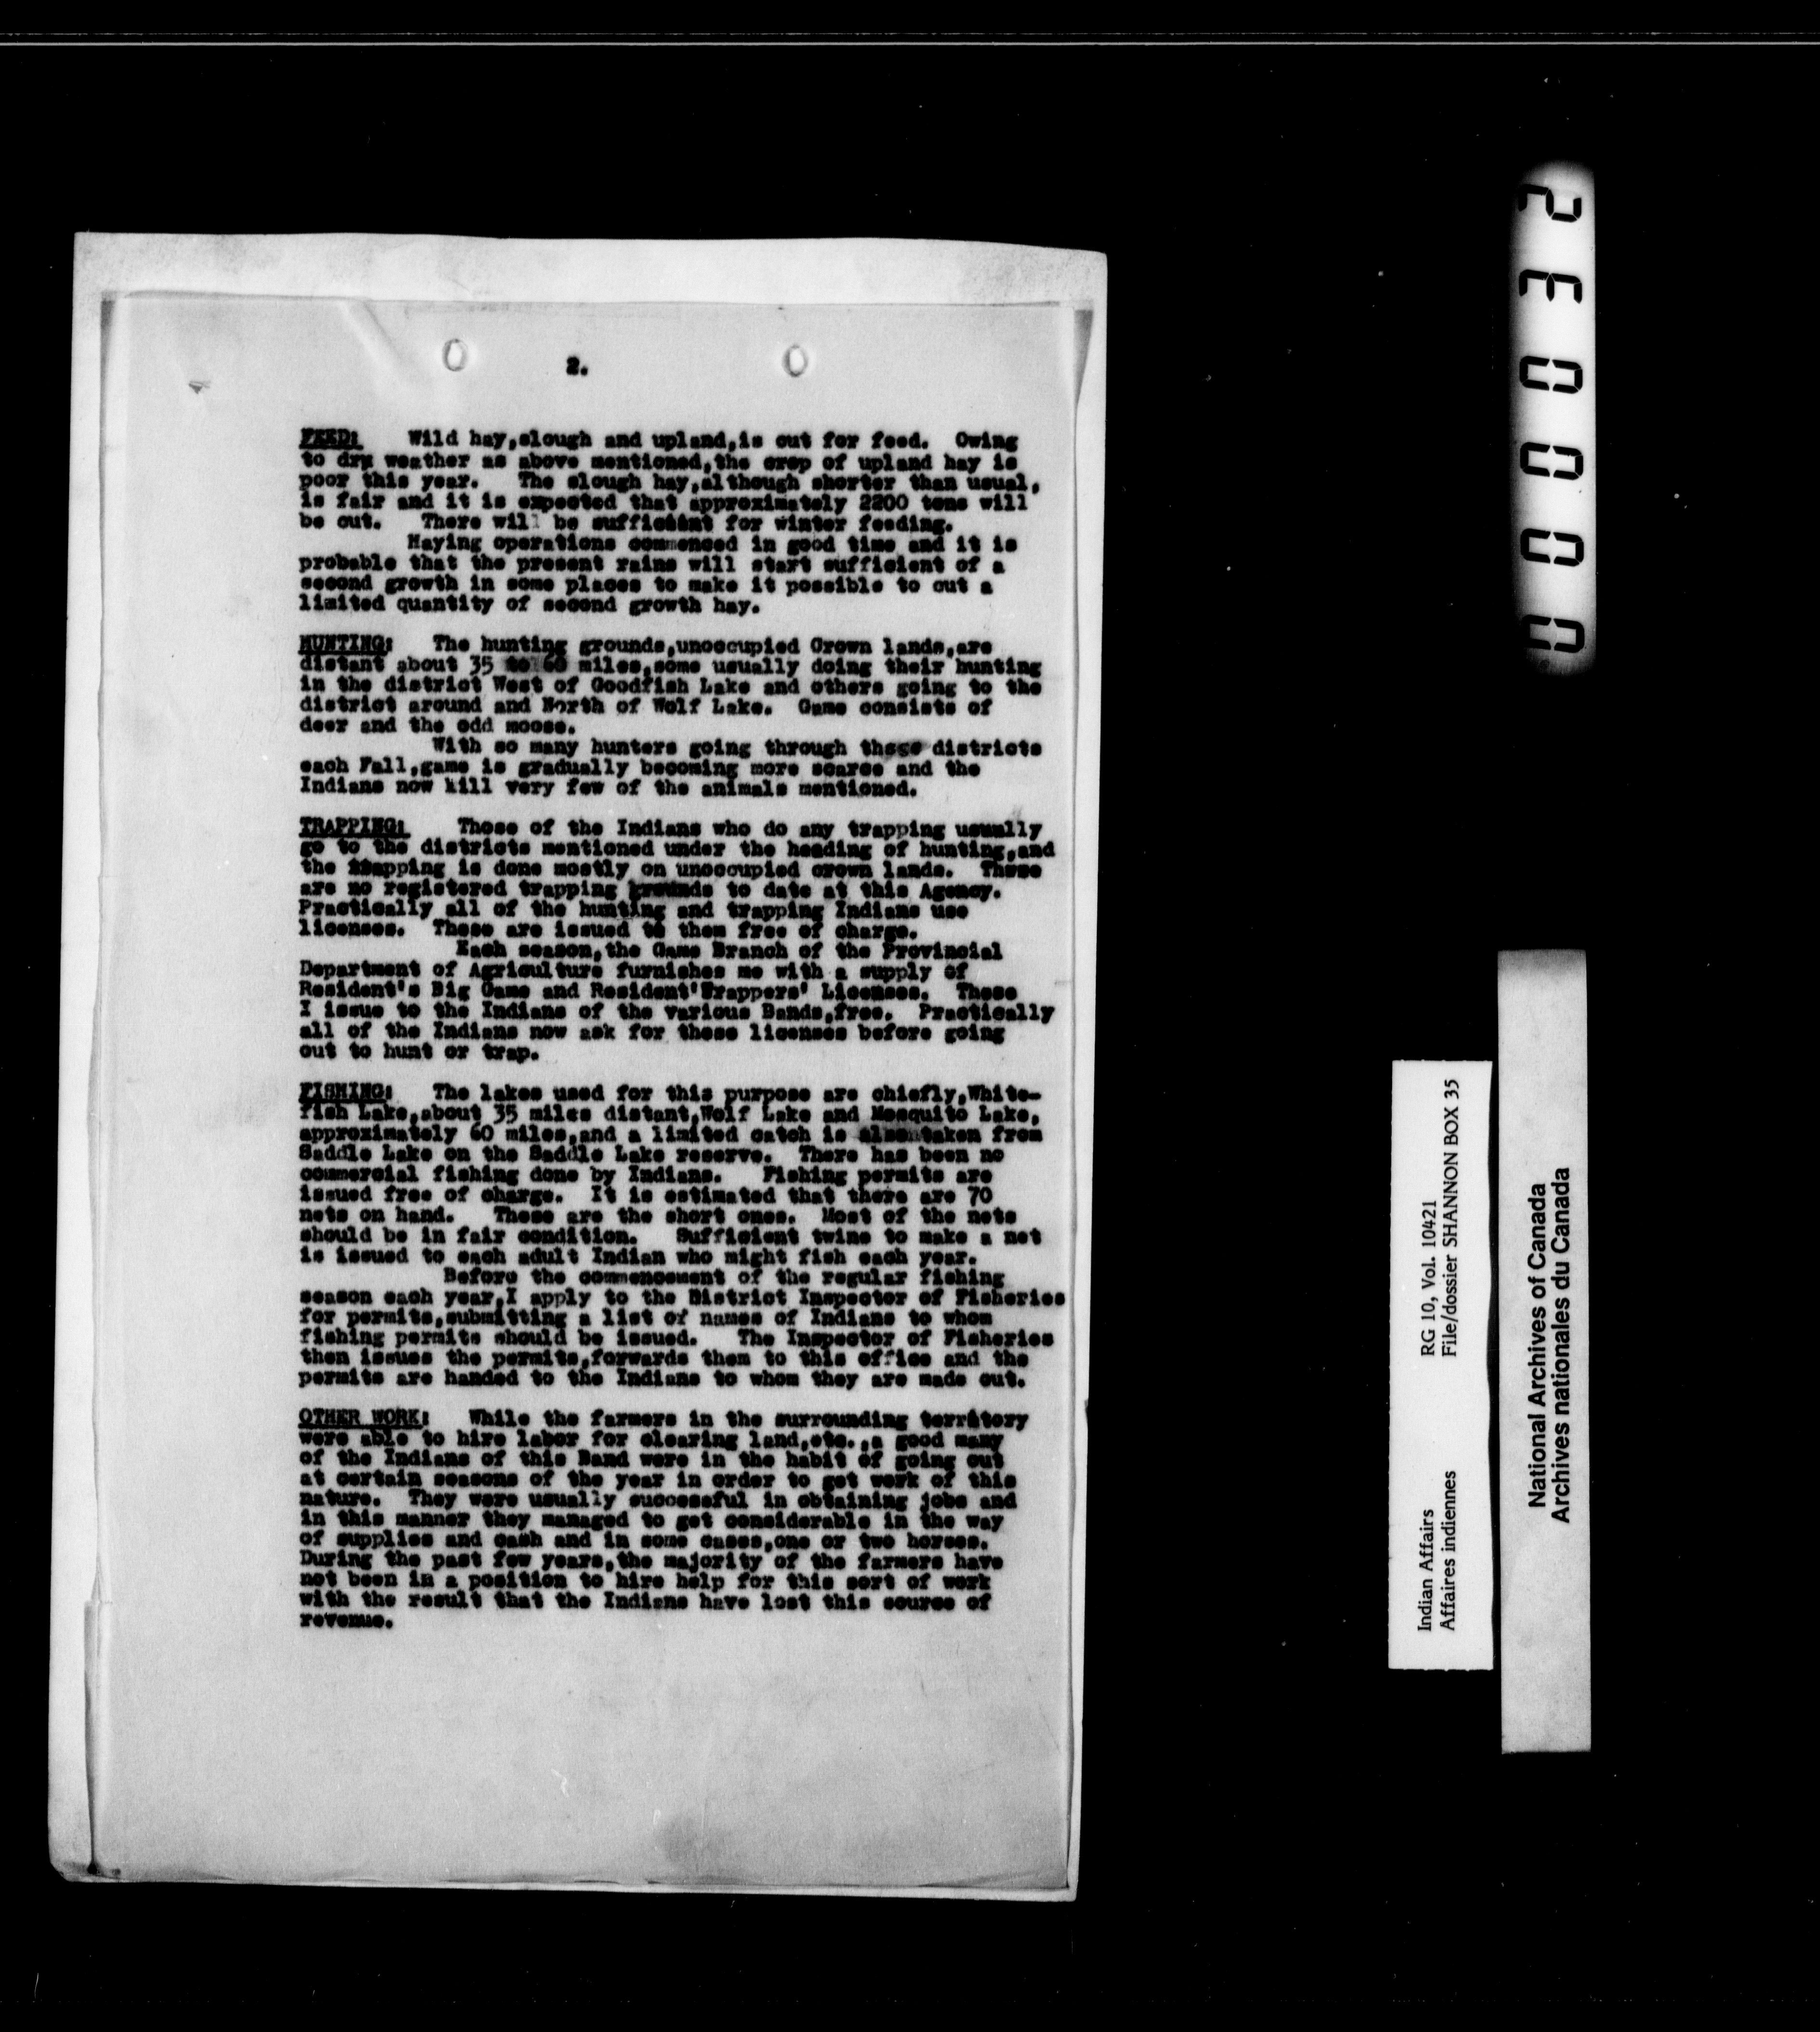 2.
FEED:   Wild hay,slough and upland,is cut for feed.  Owing
to dry weather as above mentioned,the crop of upland hay is
poor this year.   The slough hay,although shorter than usual,
is fair and it is expected that approximately 2200 tons will
be cut.   There will be sufficient for winter feeding.
Haying operations commenced in good time and it is
probable that the present rains will start sufficient of a
second growth in some places to make it possible to cut a
limited quantity of second growth hay.
HUNTING:   The hunting grounds,unoccupied Crown lands,are
distant about 35 to 60 miles,some usually doing their hunting
in the district West of Goodfish Lake and others going to the
district around and North of Wolf Lake.  Game consists of
deer and the odd moose.
With so many hunters going through these districts
each Fall,game is gradually becoming more scarce and the
Indians now kill very few of the animals mentioned.
TRAPPING:   Those of the Indians who do any trapping usually
go to the districts mentioned under the heading of hunting,and
the trapping is done mostly on unoccupied crown lands.  These
are no registered trapping grounds to date at this Agency.
Practically all of the hunting and trapping Indians use
licenses.  These are issued to them free of charge.
Each season,the Game Branch of the Provincial
Department of Agriculture furnishes me with a supply of
Resident's Big Game and Resident'Trappers' Licenses.  These
I issue to the Indians of the various Bands,free.  Practically
all of the Indians now ask for these licenses before going
out to hunt or trap.
FISHING:   The lakes used for this purpose are chiefly,White-
fish Lake,about 35 miles distant,Wolf Lake and Mosquito Lake,
approximately 60 miles,and a limited catch is also taken from
Saddle Lake on the Saddle Lake reserve.  There has been no
commercial fishing done by Indians.   Fishing permits are
issued free of charge.  It is estimated that there are 70
nets on hand.   These are the short ones.  Most of the nets
should be in fair condition.   Sufficient twine to make a net
is issued to each adult Indian who might fish each year.
Before the commencement of the regular fishing
season each year,I apply to the District Inspector of Fisheries
for permits,submitting a list of names of Indians to whom
fishing permits should be issued.   The Inspector of Fisheries
then issues the permits,forwards them to this office and the
permits are handed to the Indians to whom they are made out.
OTHER WORK:   While the farmers in the surrounding territory
were able to hire labor for clearing land,etc.,a good many
of the Indians of this Band were in the habit of going out
at certain seasons of the year in order to get work of this
nature.  They were usually successful in obtaining jobs and
in this manner they managed to get considerable in the way
of supplies and cash and in some cases,one or two horses.
During the past few years,the majority of the farmers have
not been in a position to hire help for this sort of work
with the result that the Indians have lost this source of
revenue.
Indian Affairs   RG 10, Vol. 10421
Affaires indiennes   File/dossier SHANNON BOX 35
National Archives of Canada
Archives nationales du Canada
000032